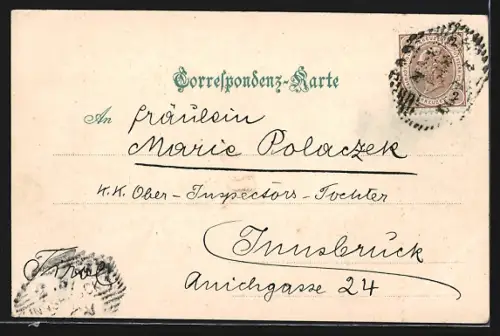 Correspondenz-Karte
An Fräulein
Marie Polaczek
K.K. Ober-Inspectors-Tochter
Innsbruck
Anichgasse 24
Tirol
2